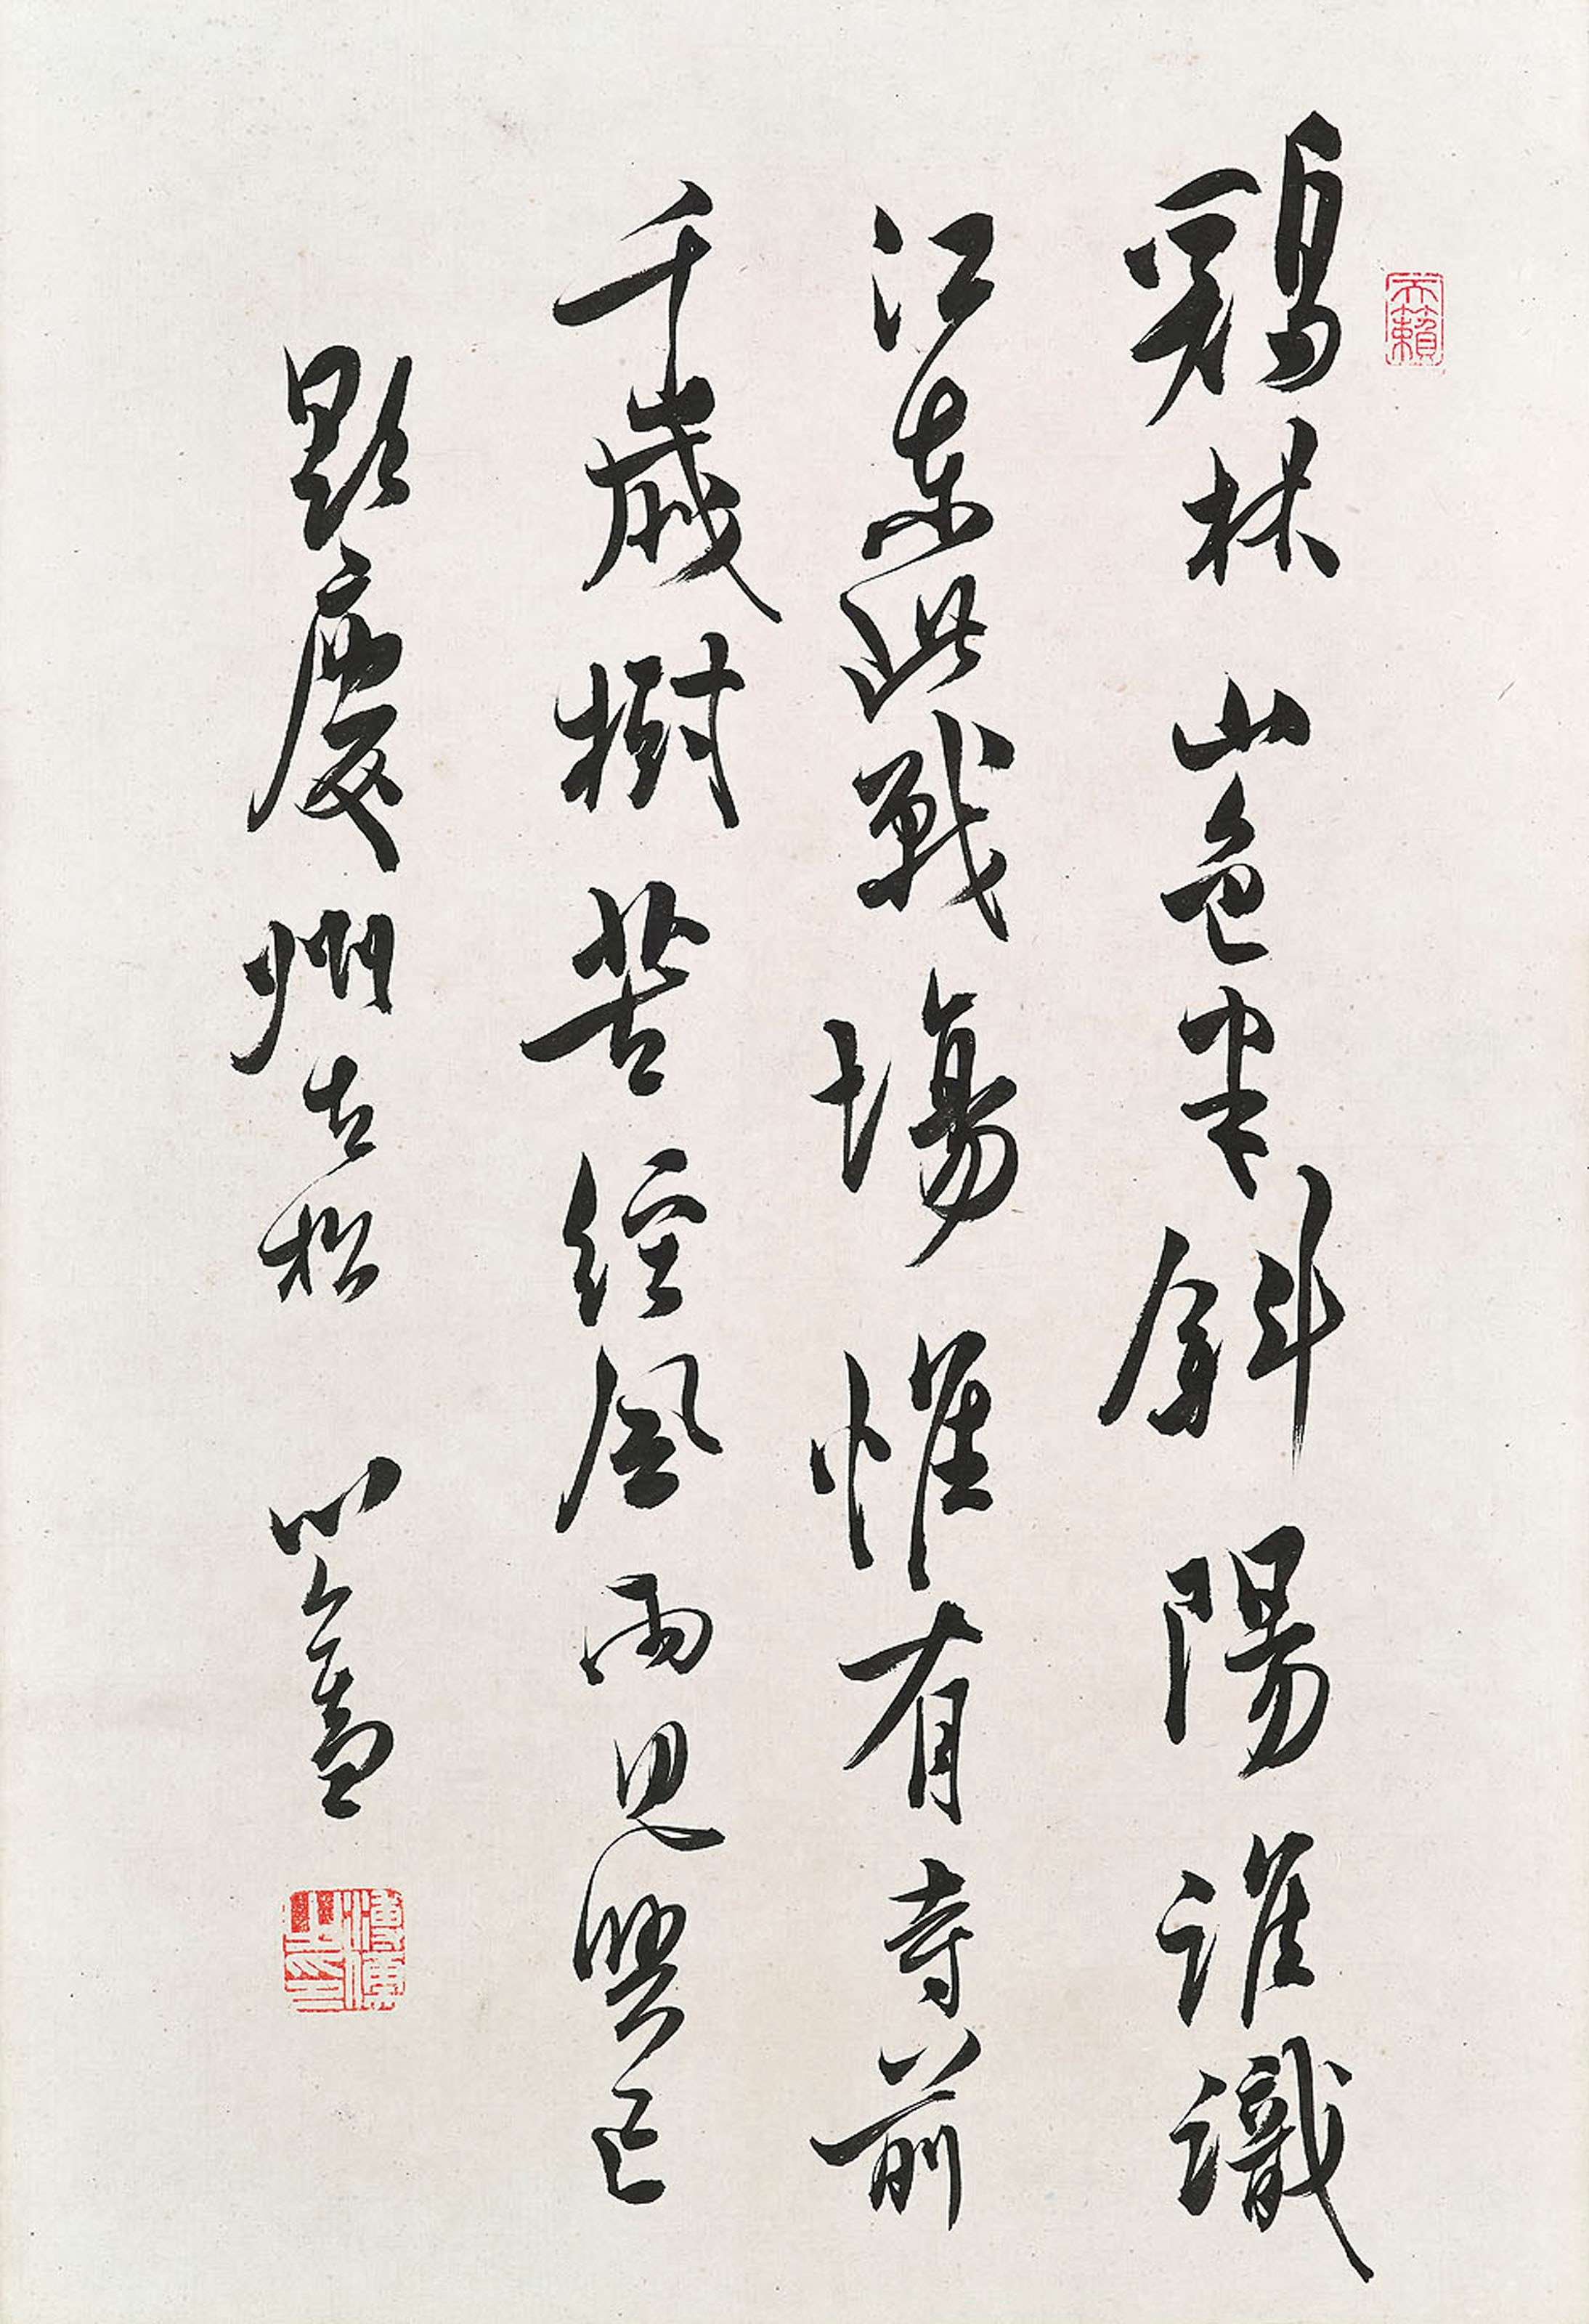 天籟
鷄林山色半斜陽誰識
江東此戰場惟有寺前
千歲樹苦經風雨見興亡
題慶州古松 心畬
溥儒之印